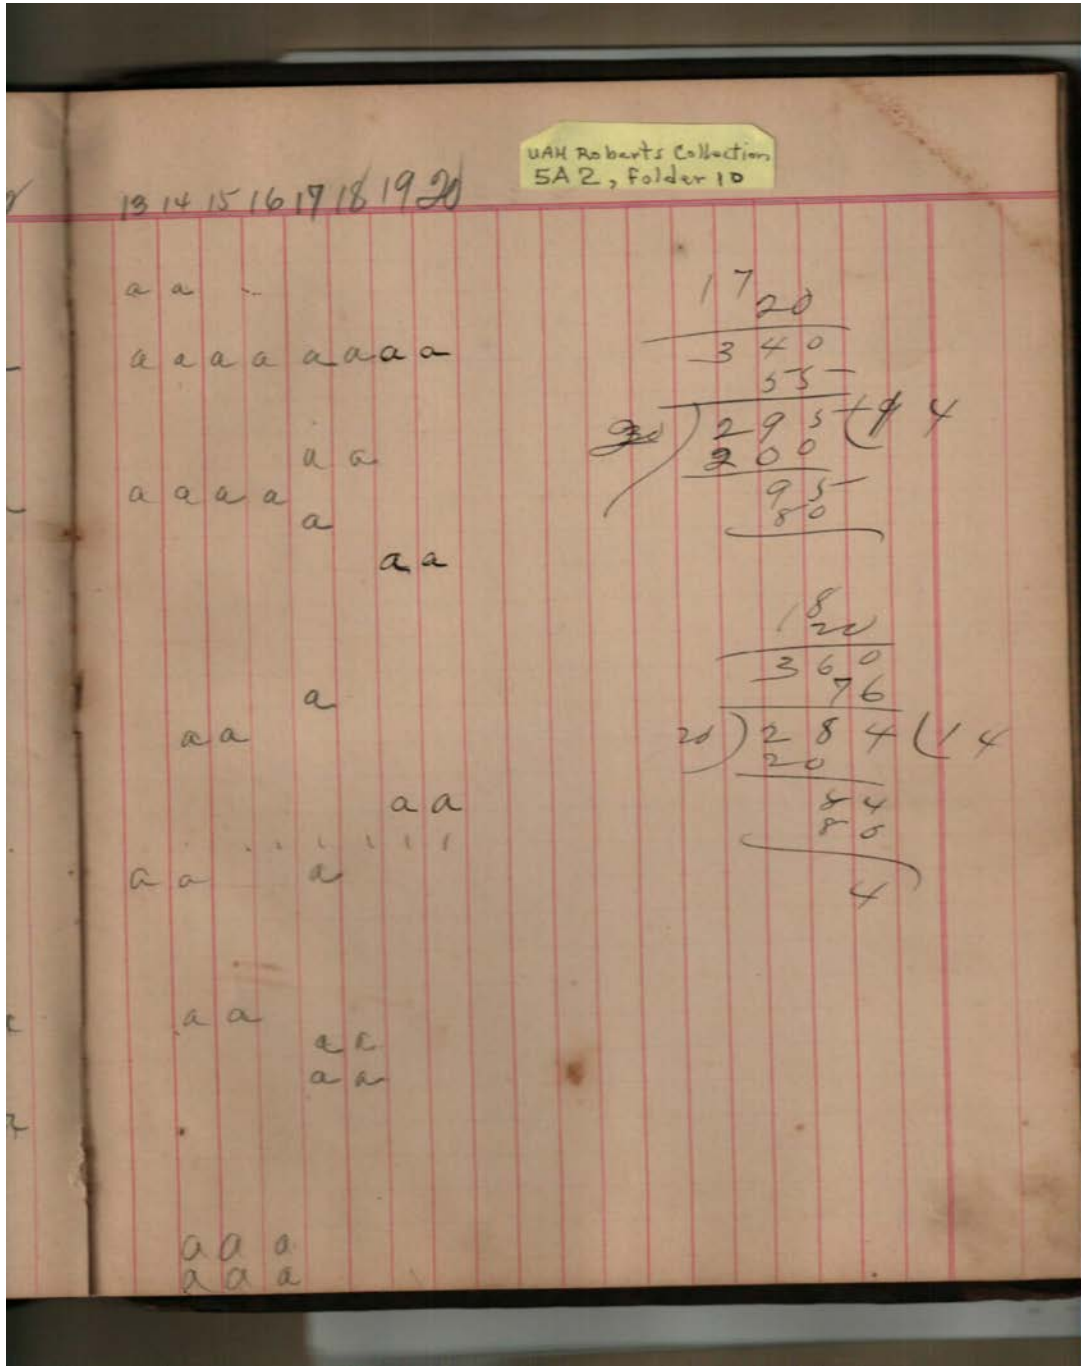 UAH Roberts Collection
5A2, Folder 10
13 14 15 16 17 18 19 20
a a
a a a a a a a a
a a
a a a a
a
a a
a
a a
a a
a a a
a a
a a
a a
a a a
a a a
17
20
340
55
20 ) 295 ( 14
200
95
80
18
20
360
76
20 ) 284 ( 14
20
84
80
4